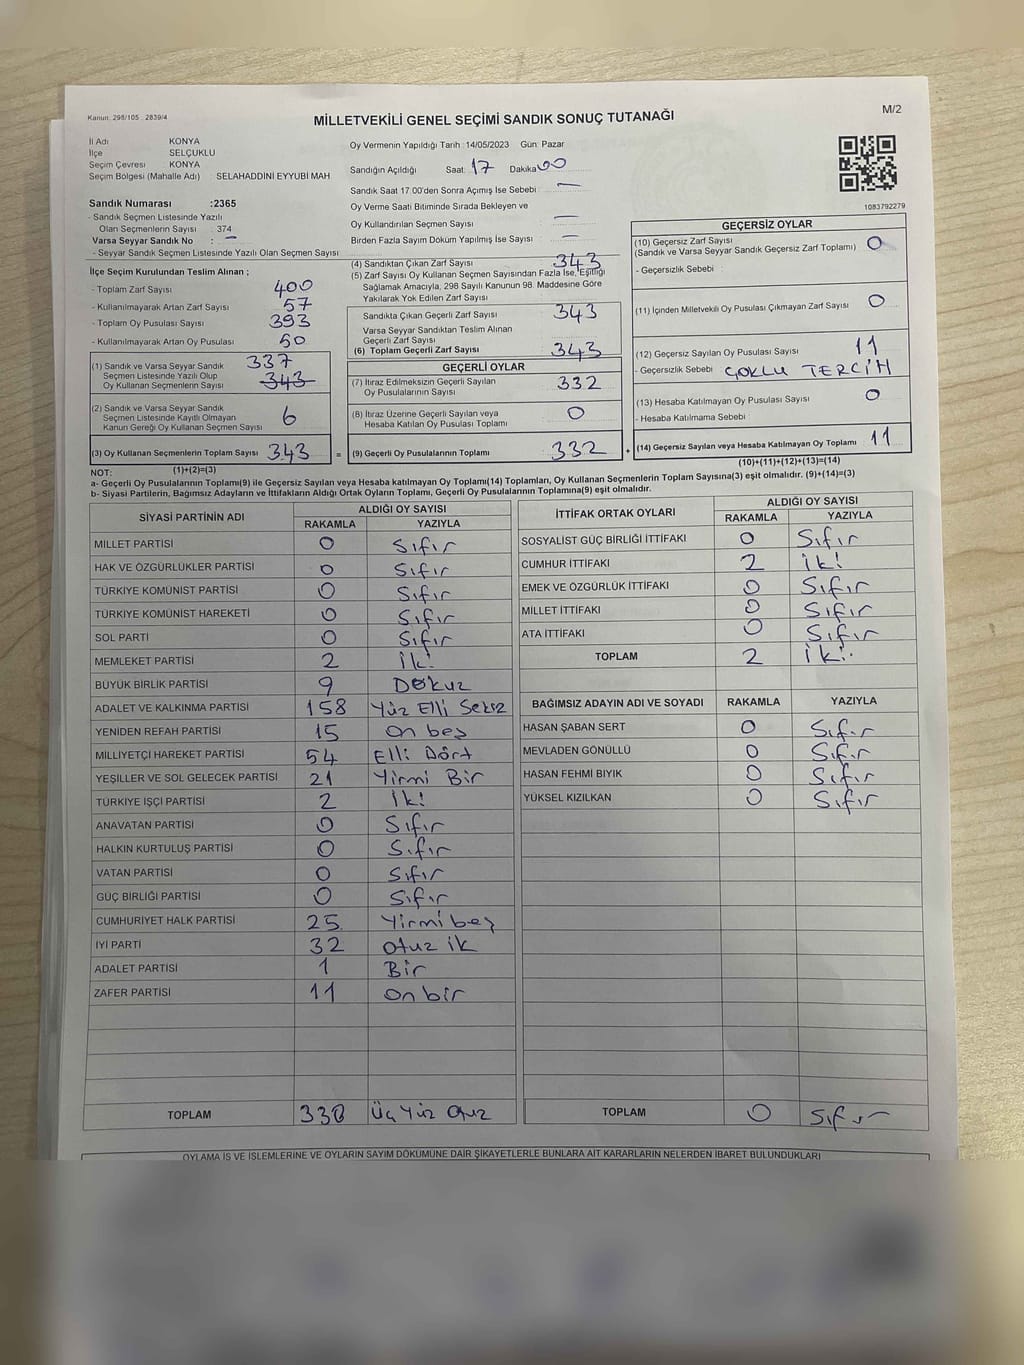 Kanun: 298/105 2839/4
M/2
MİLLETVEKİLİ GENEL SEÇİMİ SANDIK SONUÇ TUTANAĞI
İl Adı KONYA
İlçe SELÇUKLU
Seçim Çevresi KONYA
Seçim Bölgesi (Mahalle Adı) SELAHADDİNİ EYYUBİ MAH.
Sandık Numarası :2365
- Sandık Seçmen Listesinde Yazılı
Olan Seçmenlerin Sayısı : 374
Varsa Seyyar Sandık No : –
- Seyyar Sandık Seçmen Listesinde Yazılı Olan Seçmen Sayısı
Oy Vermenin Yapıldığı Tarih :14/05/2023 Gün: Pazar
Sandığın Açıldığı Saat: 17 Dakika: 00
Sandık Saat 17.00'den Sonra Açımış İse Sebebi : —
Oy Verme Saati Bitiminde Sırada Bekleyen ve
Oy Kullandırılan Seçmen Sayısı —
Birden Fazla Sayım Döküm Yapılmış İse Sayısı —
1083792279
İlçe Seçim Kurulundan Teslim Alınan ;
- Toplam Zarf Sayısı 400
- Kullanılmayarak Artan Zarf Sayısı 57
- Toplam Oy Pusulası Sayısı 393
- Kullanılmayarak Artan Oy Pusulası 50
(1) Sandık ve Varsa Seyyar Sandık 337
Seçmen Listesinde Yazılı Olup 343
Oy Kullanan Seçmenlerin Sayısı
(2) Sandık ve Varsa Seyyar Sandık
Seçmen Listesinde Kayıtlı Olmayan 6
Kanun Gereği Oy Kullanan Seçmen Sayısı
(3) Oy Kullanan Seçmenlerin Toplam Sayısı 343 =
(1)+(2)=(3)
(4) Sandıktan Çıkan Zarf Sayısı 343
(5) Zarf Sayısı Oy Kullanan Seçmen Sayısından Fazla İse, Eşitliği
Sağlamak Amacıyla, 298 Sayılı Kanunun 98. Maddesine Göre
Yakılarak Yok Edilen Zarf Sayısı
Sandıkta Çıkan Geçerli Zarf Sayısı 343
Varsa Seyyar Sandıktan Teslim Alınan
Geçerli Zarf Sayısı
(6) Toplam Geçerli Zarf Sayısı 343
GEÇERLİ OYLAR
(7) İtiraz Edilmeksizin Geçerli Sayılan
Oy Pusulalarının Sayısı 332
(8) İtiraz Üzerine Geçerli Sayılan veya
Hesaba Katılan Oy Pusulası Toplamı 0
(9) Geçerli Oy Pusulalarının Toplamı 332 +
GEÇERSİZ OYLAR
(10) Geçersiz Zarf Sayısı 0
(Sandık ve Varsa Seyyar Sandık Geçersiz Zarf Toplamı)
- Geçersizlik Sebebi :
(11) İçinden Milletvekili Oy Pusulası Çıkmayan Zarf Sayısı 0
(12) Geçersiz Sayılan Oy Pusulası Sayısı 11
- Geçersizlik Sebebi ÇOKLU TERCİH
(13) Hesaba Katılmayan Oy Pusulası Sayısı 0
- Hesaba Katılmama Sebebi :
(14) Geçersiz Sayılan veya Hesaba Katılmayan Oy Toplamı 11
(10)+(11)+(12)+(13)=(14)
NOT:
a- Geçerli Oy Pusulalarının Toplamı(9) ile Geçersiz Sayılan veya Hesaba katılmayan Oy Toplamı(14) Toplamları, Oy Kullanan Seçmenlerin Toplam Sayısına(3) eşit olmalıdır. (9)+(14)=(3)
b- Siyasi Partilerin, Bağımsız Adayların ve İttifakların Aldığı Ortak Oyların Toplamı, Geçerli Oy Pusulalarının Toplamına(9) eşit olmalıdır.
SİYASİ PARTİNİN ADI ALDIĞI OY SAYISI
RAKAMLA YAZIYLA
MİLLET PARTİSİ 0 Sıfır
HAK VE ÖZGÜRLÜKLER PARTİSİ 0 Sıfır
TÜRKİYE KOMÜNİST PARTİSİ 0 Sıfır
TÜRKİYE KOMÜNİST HAREKETİ 0 Sıfır
SOL PARTİ 0 Sıfır
MEMLEKET PARTİSİ 2 İki
BÜYÜK BİRLİK PARTİSİ 9 Dokuz
ADALET VE KALKINMA PARTİSİ 158 Yüz Elli Sekiz
YENİDEN REFAH PARTİSİ 15 On beş
MİLLİYETÇİ HAREKET PARTİSİ 54 Elli Dört
YEŞİLLER VE SOL GELECEK PARTİSİ 21 Yirmi Bir
TÜRKİYE İŞÇİ PARTİSİ 2 İki
ANAVATAN PARTİSİ 0 Sıfır
HALKIN KURTULUŞ PARTİSİ 0 Sıfır
VATAN PARTİSİ 0 Sıfır
GÜÇ BİRLİĞİ PARTİSİ 0 Sıfır
CUMHURİYET HALK PARTİSİ 25 Yirmi beş
İYİ PARTİ 32 Otuz ik
ADALET PARTİSİ 1 Bir
ZAFER PARTİSİ 11 On bir
TOPLAM 330 Üç Yüz
İTTİFAK ORTAK OYLARI ALDIĞI OY SAYISI
RAKAMLA YAZIYLA
SOSYALİST GÜÇ BİRLİĞİ İTTİFAKI 0 Sıfır
CUMHUR İTTİFAKI 2 İki
EMEK VE ÖZGÜRLÜK İTTİFAKI 0 Sıfır
MİLLET İTTİFAKI 0 Sıfır
ATA İTTİFAKI 0 Sıfır
TOPLAM 2 İki
BAĞIMSIZ ADAYIN ADI VE SOYADI RAKAMLA YAZIYLA
HASAN ŞABAN SERT 0 Sıfır
MEVLADEN GÖNÜLLÜ 0 Sıfır
HASAN FEHMİ BIYIK 0 Sıfır
YÜKSEL KIZILKAN 0 Sıfır
TOPLAM 0 Sıfır
OYLAMA İŞ VE İŞLEMLERİNE VE OYLARIN SAYIM DÖKÜMÜNE DAİR ŞİKAYETLERLE BUNLARA AİT KARARLARIN NELERDEN İBARET BULUNDUKLARI